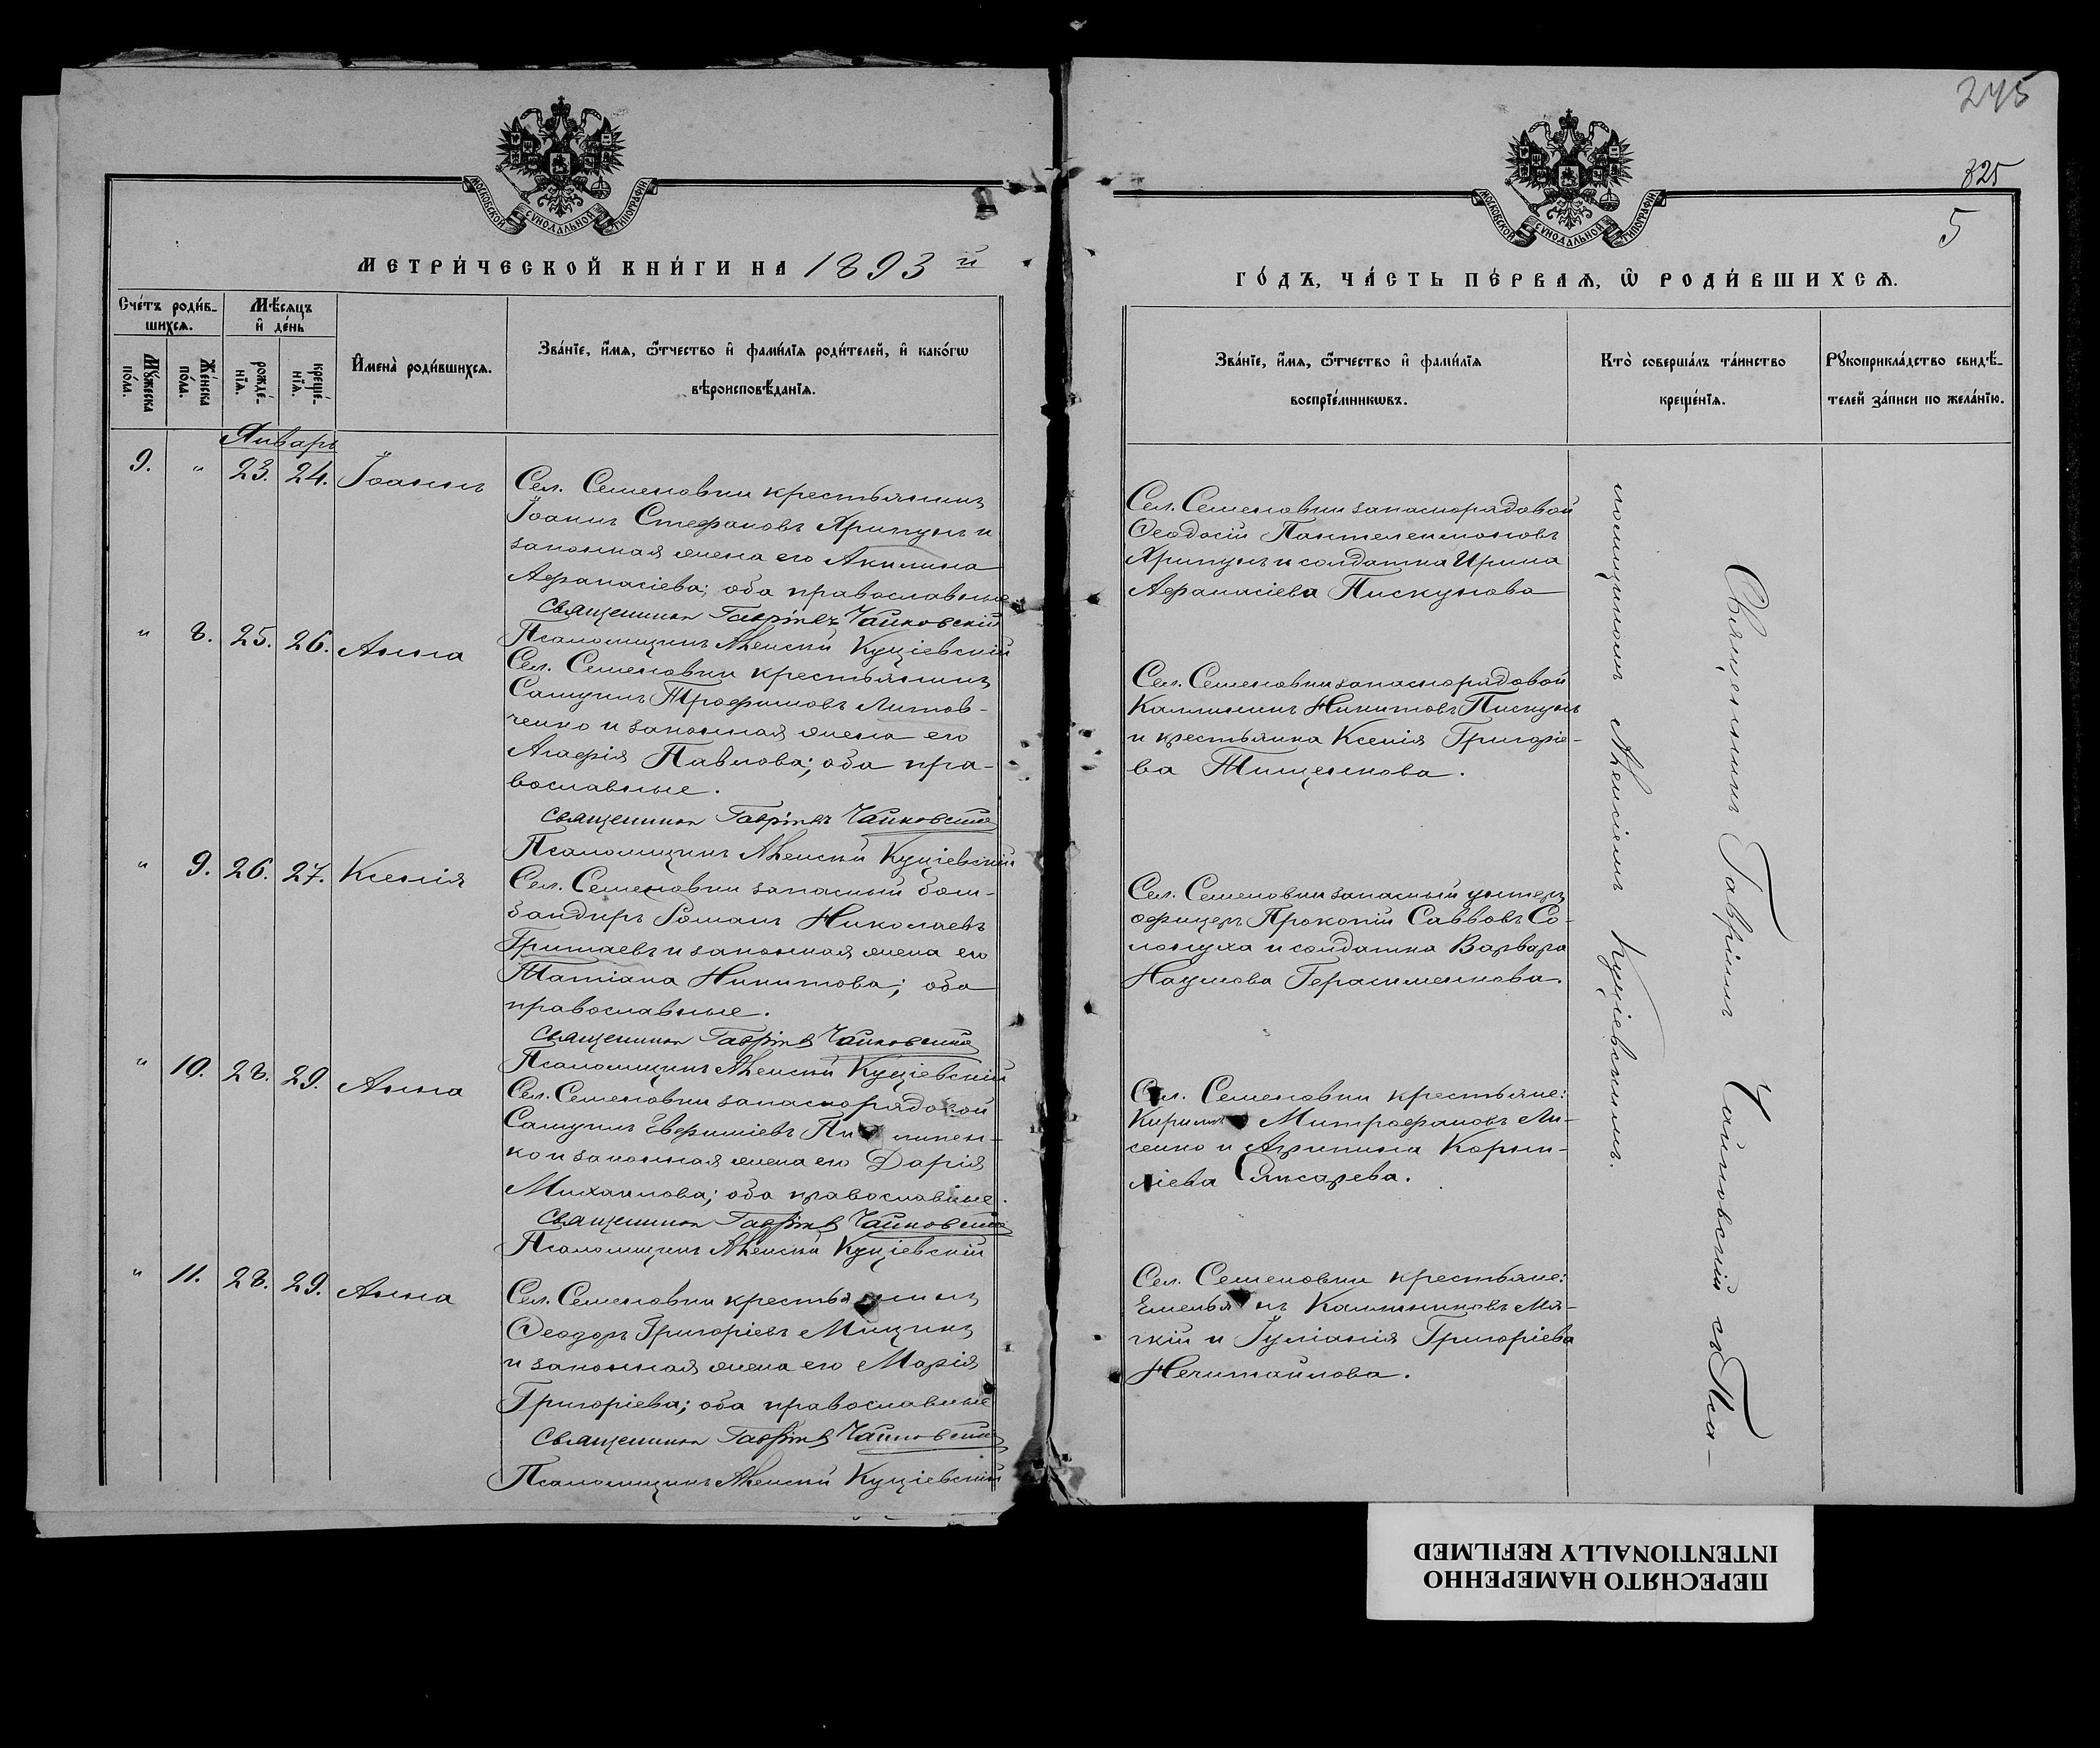 245
325
5
МОСКОВСКОЙ СѴНОДАЛЬНОЙ ТИПОГРАФІИ
МОСКОВСКОЙ СѴНОДАЛЬНОЙ ТИПОГРАФІИ
МЕТРИ́ЧЕСКОЙ КНИ́ГИ НА 1893 й
ГО́ДЪ, ЧА́СТЬ ПЕ́РВАѦ, Ѿ РОДИ́ВШИХСѦ.
Сче́тъ роди́в-
шихсѧ.
Мѣ́сѧцъ
и҆ де́нь
Мꙋ́жеска
по́ла.
Же́нска
по́ла.
рожде́-
нїѧ.
креще́-
нїѧ.
И҆мена̀ роди́вшихсѧ.
Зва́нїе, и҆́мѧ, ѻ҆́тчество и҆ фами́лїѧ роди́телей, и҆ како́гѡ
вѣроисповѣ́данїѧ.
Зва́нїе, и҆́мѧ, ѻ҆́тчество и҆ фами́лїѧ
воспрїе́мникѡвъ.
Кто̀ соверша́лъ та́инство
креще́нїѧ.
Рꙋкоприкла́дство свидѣ́-
телей за́писи по жела́нїю.
Январь
9. " 23. 24. Іоаннъ
Сел. Семеновки крестьянинъ
Іоаннъ Стефановъ Хрипунъ и
законная жена его Акилина
Афанасіева; оба православные
Священникъ Гавріилъ Чайковскій
Псаломщикъ Алексій Куціевскій
Сел. Семеновки запаснорядовой
Ѳеодосій Пантелеимоновъ
Хрипунъ и солдатка Ирина
Афанасіева Пискунова
" 8. 25. 26. Анна
Сел. Семеновки крестьянинъ
Самуилъ Трофимовъ Литов-
ченко и законная жена его
Агафія Павлова; оба пра-
вославные.
Священникъ Гавріилъ Чайковскій
Псаломщикъ Алексій Куціевскій
Сел. Семеновки запаснорядовой
Каллиникъ Никитовъ Пискунъ
и крестьянка Ксенія Григоріе-
ва Тищенкова.
" 9. 26. 27. Ксенія
Сел. Семеновки запасный бом-
бандиръ Романъ Николаевъ
Гритаевъ и законная жена его
Татіана Никитова; оба
православные.
Священникъ Гавріилъ Чайковскій
Псаломщикъ Алексій Куціевскій
Сел. Семеновки запасный унтеръ
офицеръ Прокопій Саввовъ Со-
лопуха и солдатка Варвара
Наумова Герасименкова.
" 10. 28. 29. Анна
Сел. Семеновки запаснорядовой
Самуилъ Евфиміевъ
ко и законная жена его Дарія
Михаилова; оба православные.
Священникъ Гавріилъ Чайковскій
Псаломщикъ Алексій Куціевскій
Сел. Семеновки крестьяне:
Кириллъ Митрофановъ Ли-
сенко и Агрипина Корни-
ліева Слюсарева.
" 11. 28. 29. Анна
Сел. Семеновки крестьянинъ
Ѳеодоръ Григоріевъ Мицикъ
и законная жена его Марія
Григоріева; оба православные
Священникъ Гавріилъ Чайковскій
Псаломщикъ Алексій Куціевскій
Сел. Семеновки крестьяне:
Емельянъ Каллиниковъ Мя-
гкій и Іуліанія Григоріева
Нечитайлова.
Священникъ Гавріилъ Чайковскій съ Пса-
ломщикомъ Алексіемъ Куціевскимъ.
ПЕРЕСНЯТО НАМЕРЕННО
INTENTIONALLY REFILMED